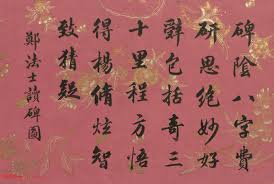 碑陰八字費
研思絶妙好
辭包括奇三
十里程方悟
得楊脩炫智
致猜疑
鄭法士讀碑圖